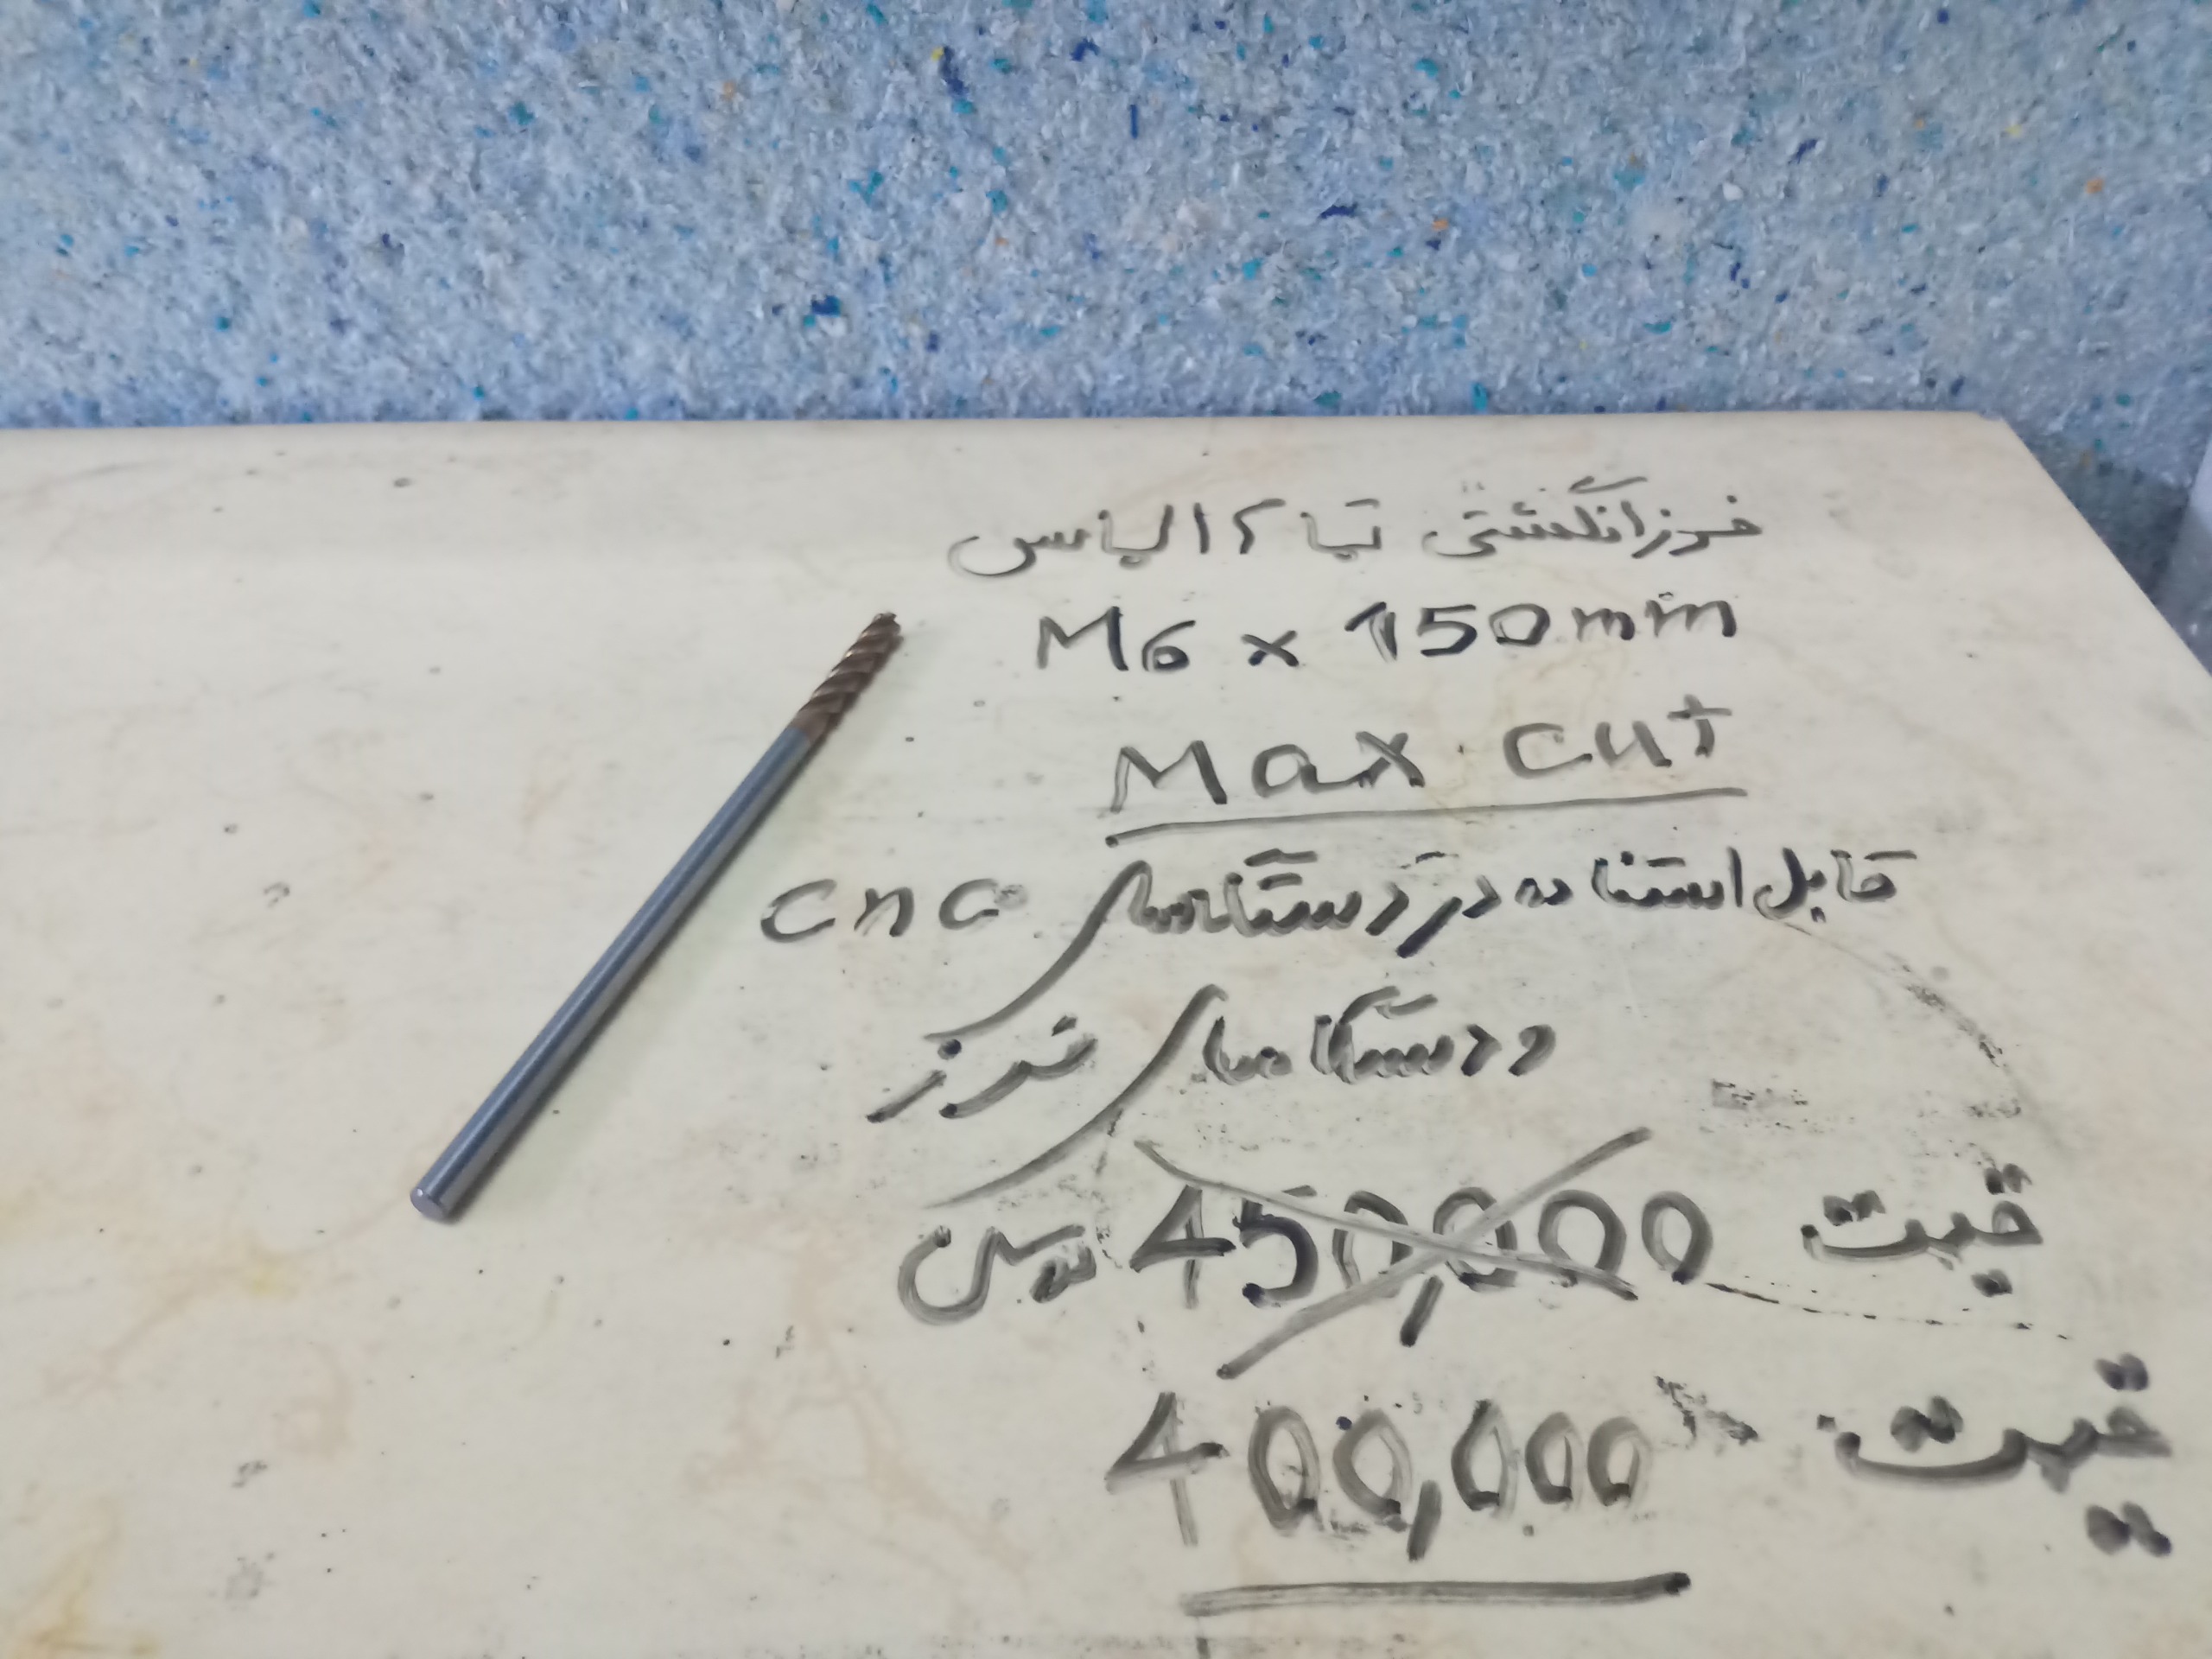 فرز انگشتی تمام الماس
M6 x 150mm
Max cut
قابل استفاده در دستگاههای cnc
و دستگاههای فرز
قیمت 450,000
قیمت 400,000